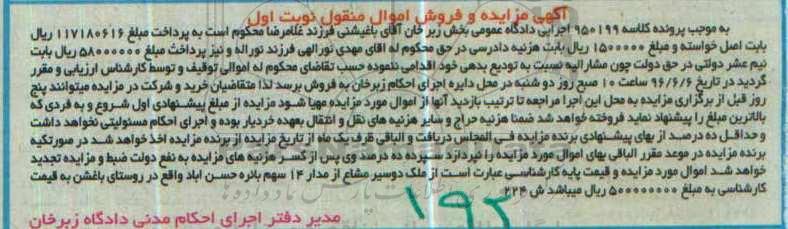 آگهی مزایده و فروش اموال منقول نوبت اول
به موجب پرونده کلاسه ۹۵۰۱۹۹ اجرایی دادگاه عمومی بخش زبر خان آقای باغیشنی فرزند غلامرضا محکوم است به پرداخت مبلغ ۱۱۷۱۸۰۶۱۶ ریال
بابت اصل خواسته و مبلغ ۱۵۰۰۰۰۰ ریال بابت هزینه دادرسی در حق محکوم له اقای مهدی نورالهی فرزند نوراله و نیز پرداخت مبلغ ۵۸۰۰۰۰۰ ریال بابت
نیم عشر دولتی در حق دولت چون مشارالیه نسبت به تودیع بدهی خود اقدامی ننموده حسب تقاضای محکوم له اموالی توقیف و توسط کارشناس ارزیابی و مقرر
گردید در تاریخ ۹۶/۶/۶ ساعت ۱۰ صبح روز دو شنبه در محل دایره اجرای احکام زبرخان به فروش برسد لذا متقاضیان خرید و شرکت در مزایده میتوانند پنج
روز قبل از برگزاری مزایده به محل این اجرا مراجعه تا ترتیب بازدید آنها از اموال مورد مزایده مهیا شود مزایده از مبلغ پیشنهادی اول شروع و به فردی که
بالاترین مبلغ را پیشنهاد نماید فروخته خواهد شد ضمنا هزینه حراج و سایر هزینه های نقل و انتقال بعهده خریدار بوده و اجرای احکام مسئولیتی نخواهد داشت
و حداقل ده درصد از بهای پیشنهادی برنده مزایده فی المجلس دریافت و الباقی ظرف یک ماه از تاریخ مزایده از برنده مزایده اخذ خواهد شد در صورتکیه
برنده مزایده در موعد مقرر الباقی بهای اموال مورد مزایده را نپردازد سپرده ده درصد وی پس از کسر هزینه های مزایده به نفع دولت ضبط و مزایده تجدید
خواهد شد اموال مورد مزایده و قیمت پایه کارشناسی عبارت است از ملک دوسیر مشاع از مدار ۱۴ سهم بائره حسن اباد واقع در روستای باغشن به قیمت
کارشناسی به مبلغ ۵۰۰۰۰۰۰۰۰ ریال میباشد ش ۲۲۴
۱۹۲
مدیر دفتر اجرای احکام مدنی دادگاه زبرخان